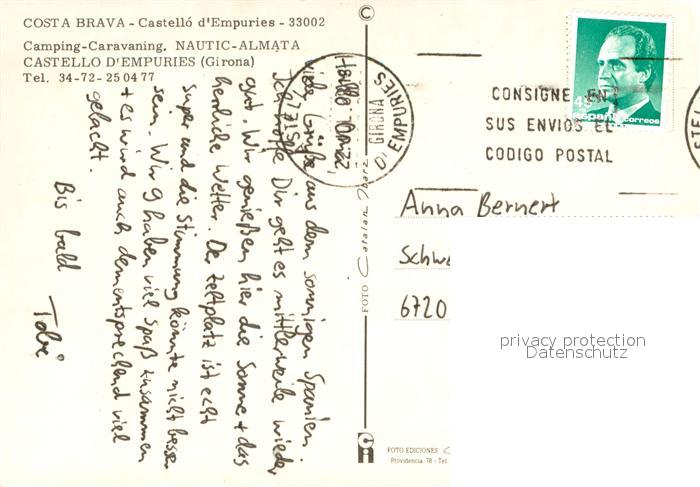 COSTA BRAVA - Castelló d'Empuries - 33002
Camping-Caravaning, NAUTIC-ALMATA
CASTELLO D'EMPURIES (Girona)
Tel. 34-72-25 04 77
Hallo Anna,
viele Grüße aus dem sonnigen Spanien.
Ich hoffe Dir geht es mittlerweile wieder
gut. Wir genießen hier die Sonne + das
herrliche Wetter. Der Zeltplatz ist echt
super und die Stimmung könnte nicht besser
sein. Wir 9 haben viel Spaß zusammen
+ es wird auch dementsprechend viel
gelacht.
Bis bald
Tobi
FOTO Catalan Ibarz
GIRONA
D. EMPURIES
CONSIGNE EN
SUS ENVIOS EL
CODIGO POSTAL
españa correos
Anna Bernert
Schw
6720
privacy protection
Datenschutz
FOTO EDICIONES C
Providencia 78 - Tel